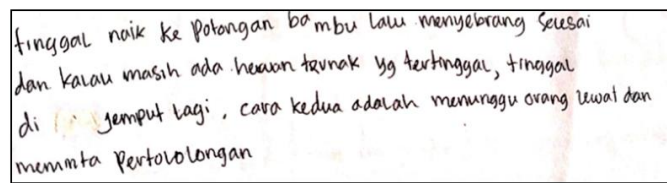 tinggal naik ke potongan bambu lalu menyebrang selesai
dan kalau masih ada hewan ternak yg tertinggal, tinggal
di jemput lagi, cara kedua adalah menunggu orang lewat dan
meminta pertovolongan